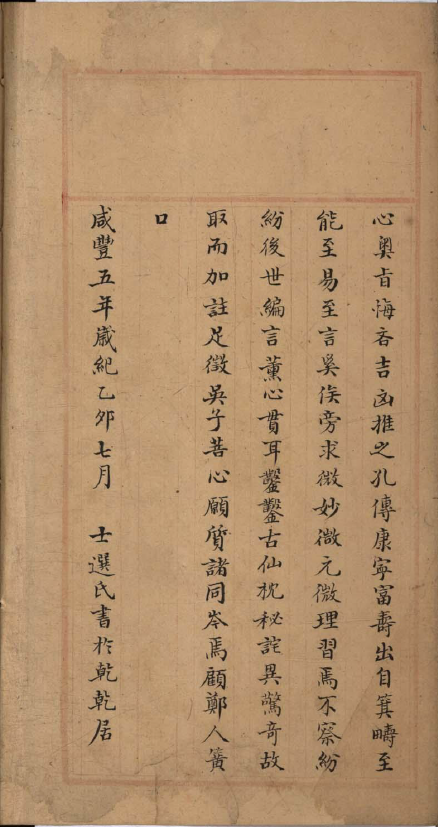 心奧旨悔吝吉凶推之孔傳康寧富壽出自箕疇至
能至易至言奚俟旁求微妙微元微理習焉不察紛
紛後世編言薰心貫耳鑿鑿古仙枕秘詫異驚奇故
取而加註足徵吳子苦心願質諸同岑焉顧鄭人簧
口
咸豐五年歲紀乙卯七月 士選氏書於乾乾居